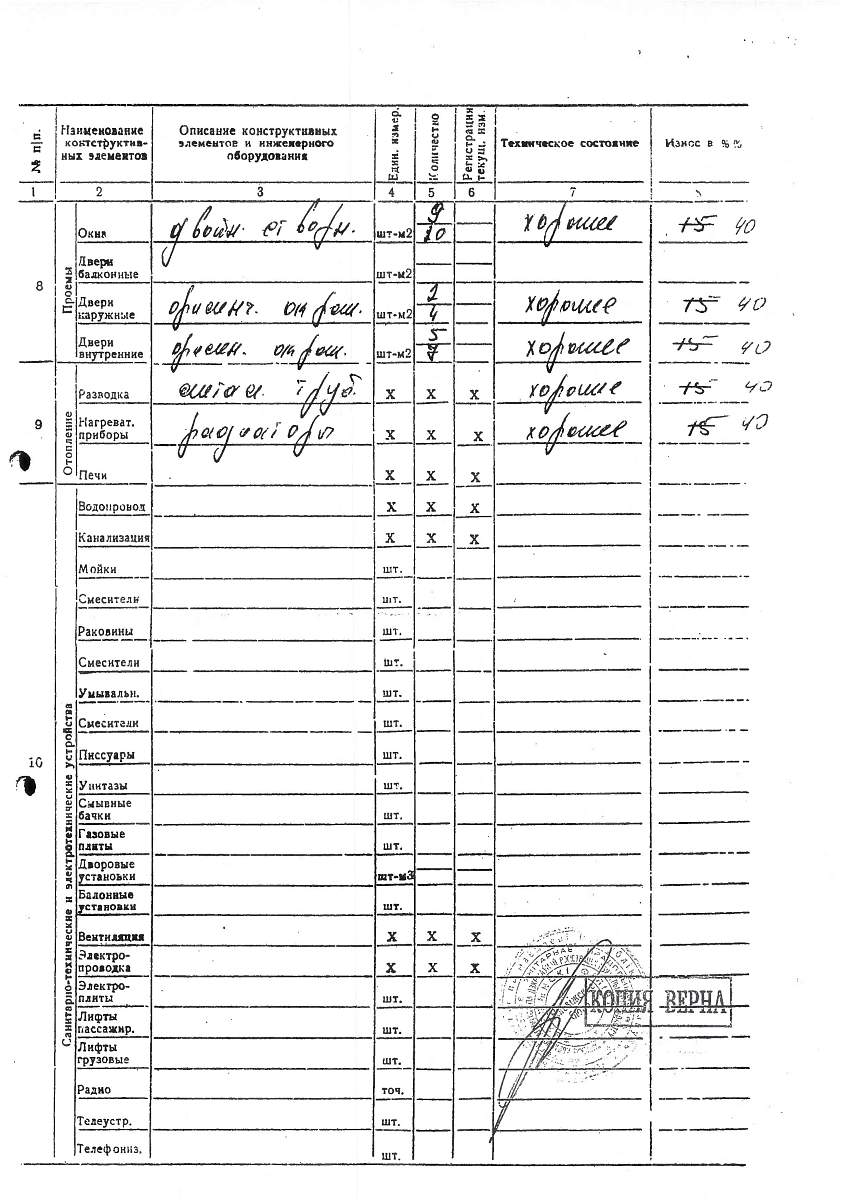 № п|п. Наименование констструктив- ных элементов Описание конструктивных элементов и инженерного оборудования Един. измер. Количество Регистрация текущ. изм. Техническое состояние Износ в %%
1 2 3 4 5 6 7
8 Проемы
Окна двойн. створн. шт-м2 9 10 хорошее 15 40
Двери балконные шт-м2
Двери наружные шт-м2 2 4 хорошее 15 40
Двери внутренние шт-м2 5 7 хорошее 15 40
9 Отопление
Разводка метал. труб. X X X хорошие 15 40
Нагреват. приборы радиаторы X X X хорошее 15 40
Печи X X X
10 Санитарно-технические и электротехнические устройства
Водопровод X X X
Канализация X X X
Мойки шт.
Смесители шт.
Раковины шт.
Смесители шт.
Умывальн. шт.
Смесители шт.
Писсуары шт.
Унитазы шт.
Смывные бачки шт.
Газовые плиты шт.
Дворовые установки шт-м3
Балонные установки шт.
Вентиляция X X X
Электро- проводка X X X
Электро- плиты шт.
КОПИЯ ВЕРНА
Лифты пассажир. шт.
Лифты грузовые шт.
Радио точ.
Телеустр. шт.
Телефониз. шт.